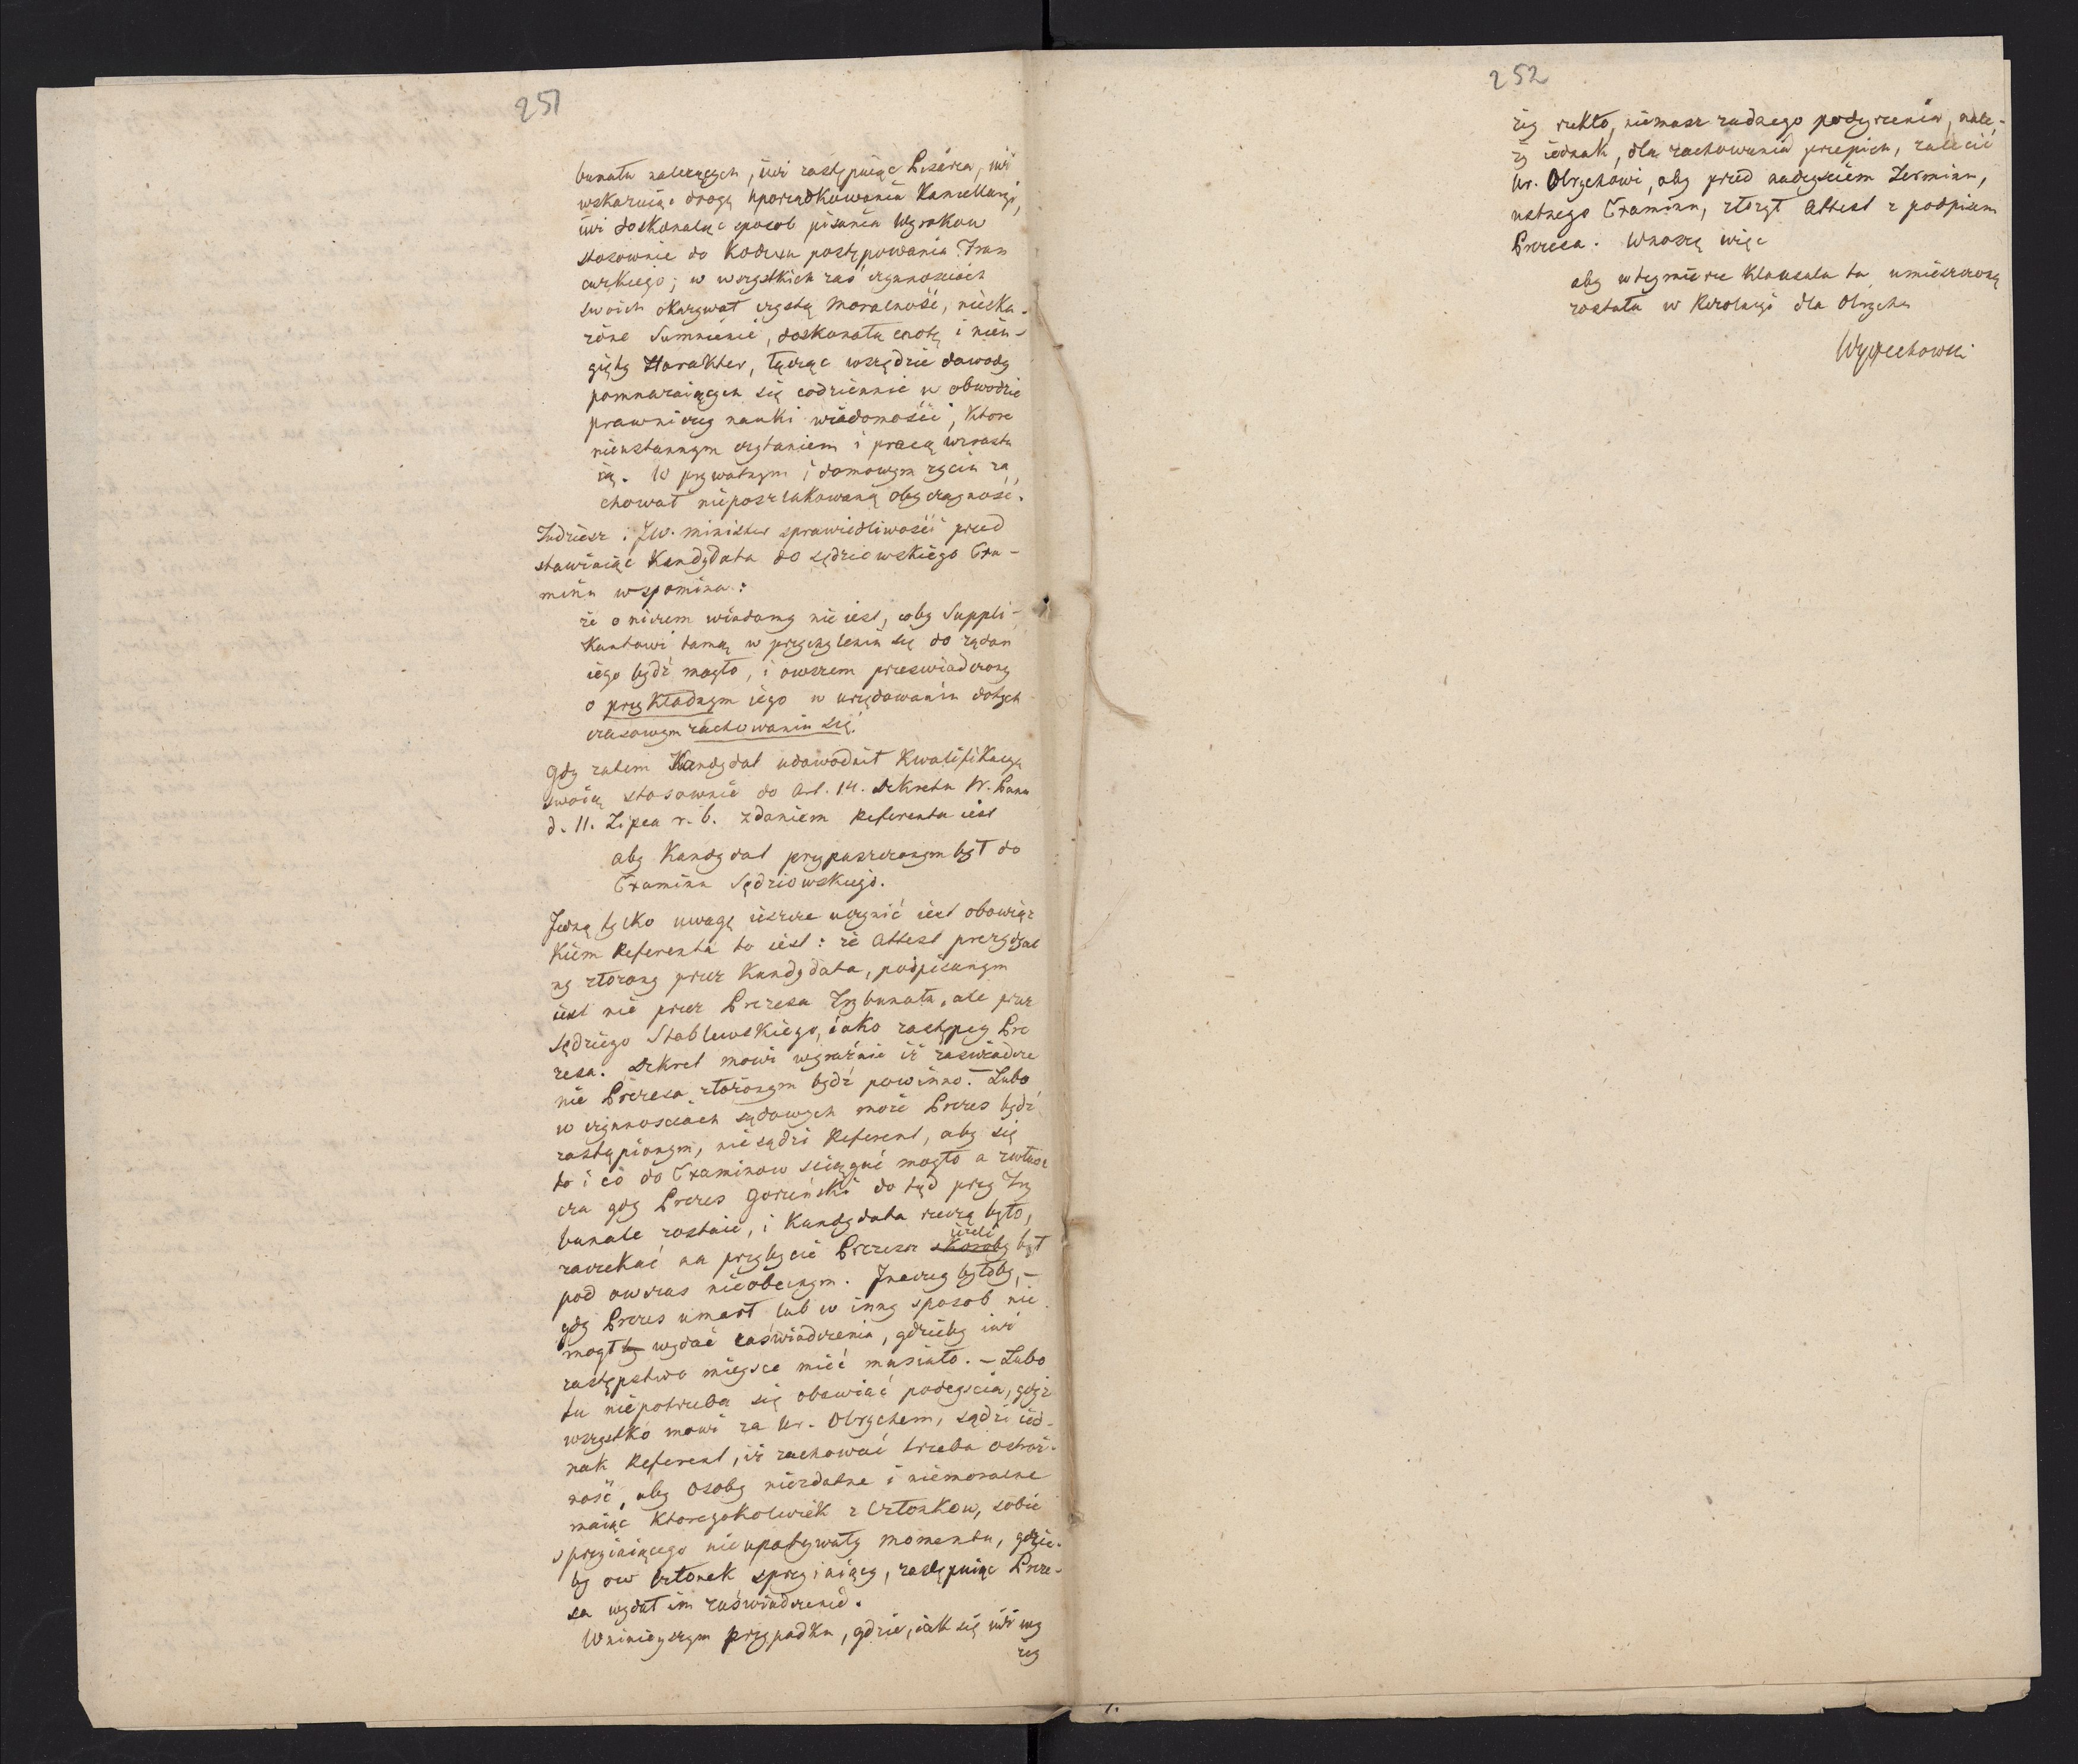 251
bunału należących, iuż zastępuiąc Pisarza, iuż
wskazuiąc drogę uporządkowania Kancellaryi,
iuż doskonaląc sposob pisania Wyrokow
stosownie do Kodexu postępowania Fran
cuzkiego; w wszystkich zaś czynnościach
swoich okazywał czystą moralność, nieska-
żone Sumnienie, doskonałą cnotę i nieu-
gięty Harakter, łącząc wszędzie dowody
pomnażaiących się codziennie w obwodzie
prawniczey nauki wiadomości, ktore
nieustannym czytaniem i pracą wzrasta
ią. W prywatnym i domowym życiu za
chował nieposzlakowaną obyczayność.
Tudziesz: JW. Minister sprawiedliwości przed
stawiaiąc Kandydata do sędziowskiego Exa-
minu wspomina:
że o niczem wiadomy nie iest, coby Suppli-
kantowi tamą w przychyleniu się do żądań
iego bydź mogło, i owszem przeświadczony
o przykładnym iego w urzędowaniu dotych
czasowym zachowaniu się.
Gdy zatem Kandydat udowodnił Kwalifikacyą
swoią stosownie do Art. 14. Dekretu Kr. Pana
d. 11. Lipca r. b. zdaniem Referenta iest
aby Kandydat przypuszczonym był do
Examinu Sędziowskiego.
Jedną tylko uwagę ieszcze uczynić iest obowiąz
kiem Referenta to iest: że Attest prezydyal
ny złożony przez Kandydata, podpisanym
iest nie przez Prezesa Trybunału, ale przez
Sędziego Stablewskiego, iako zastępcy Pre
zesa. Dekret mowi wyraźnie iż zaświadcze
nie Prezesa złożonym bydź powinno. Lubo
w czynnościach sądowych może Prezes bydź
zastąpionym, nie sądzi Referent, aby się
to i co do Examinow ściągać mogło a zwłasz
cza gdy Prezes Gorzeński do tąd przy Try
bunale zostaie, i Kandydata rzeczą było,
zaczekać na przybycie Prezesa iżeli był
pod owczas nieobecnym. Inaczey byłoby,-
gdy Prezes umarł lub w inny sposob nie
mogł by wydać zaświadczenia, gdzieby iuż
zastępstwo mieysce mieć musiało. - Lubo
tu niepotrzeba się obawiać podeyścia, gdyż
wszystko mowi za Ur. Olrychem, sądzi ied-
nak Referent, iż zachować trzeba ostroż-
ność, aby osoby niezdatne i niemoralne
maiąc ktoregokolwiek z Członkow, sobie
sprzyiaiącego nieupatrywały momentu, gdzie-
by ow Członek sprzyiaiący, zastępuiąc Preze-
sa wydał im zaświadczenie.
W ninieyszym przypadku, gdzie, iak się iuż wy
żey
252
żey rzekło, niemasz żadnego podeyrzenia, nale-
ży iednak, dla zachowania przepisu, zalecić
Ur. Olrychowi, aby przed nadeyściem Terminu,
ustnego Examinu, złożył Attest z podpisem
Prezesa. Wnoszę więc
aby w tey mierze Klauzula ta umieszczoną
została w Rezolucyi dla Olrycha
Wyczechowski